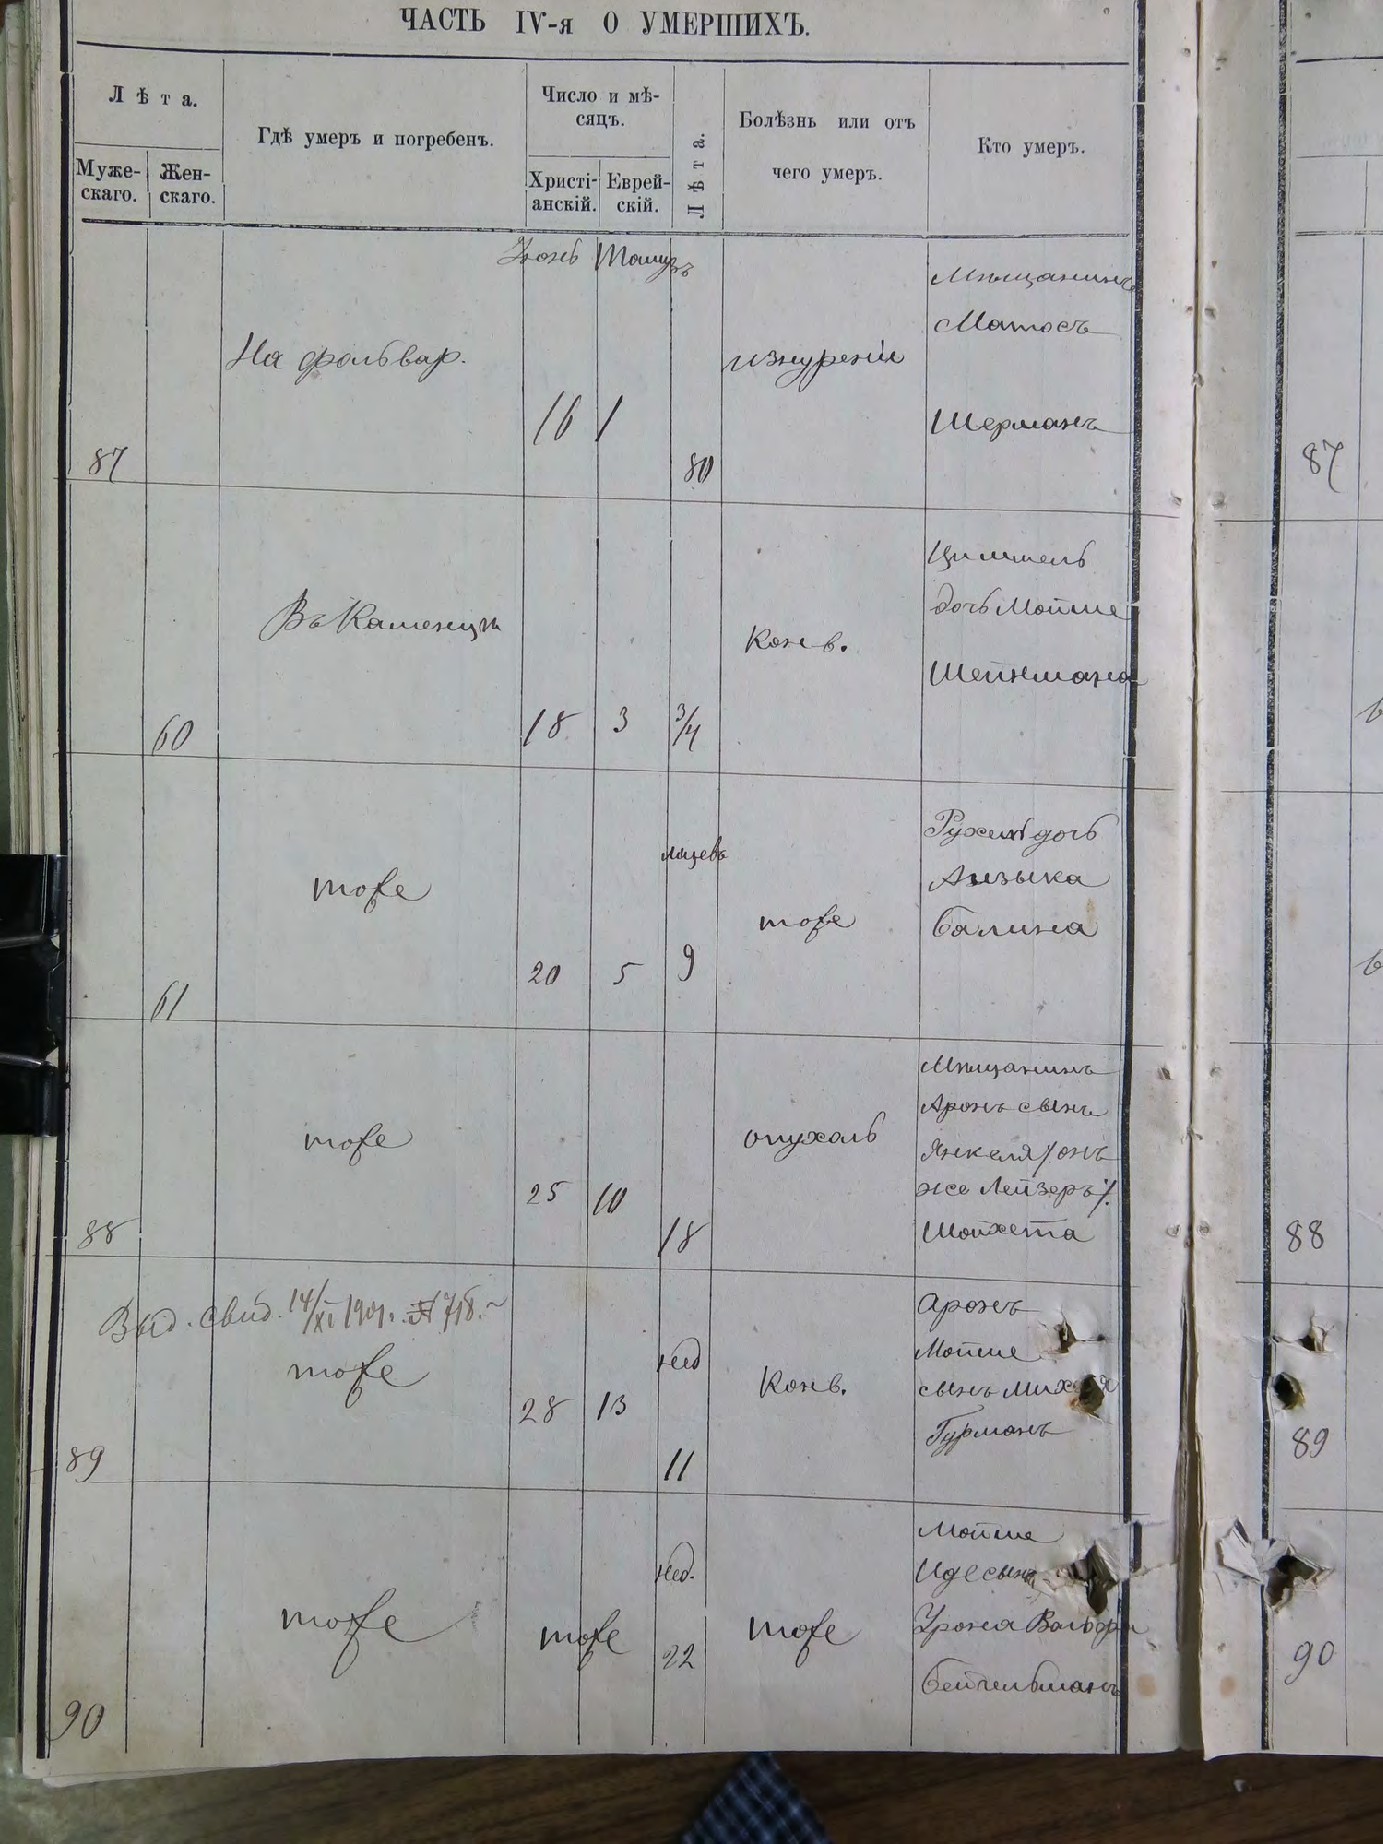 ЧАСТЬ IV-я О УМЕРШИХЪ.
Лѣта.
Муже-
скаго.
Жен-
скаго.
Гдѣ умеръ и погребенъ.
Число и мѣ-
сяцъ.
Христі-
анскій.
Еврей-
скій.
Лѣта.
Болѣзнь или отъ
чего умеръ.
Кто умеръ.
Іюнь Тамузъ
87
На фольвар.
16 1
80
изнуренія
Мѣщанинъ
Матосъ
Шерманъ
87
60
Въ Каменцѣ
18 3
3/4
Конв.
Цимпель
дочь Мойше
Шейнмана
61
тоже
20 5
мѣсяцевъ
9
тоже
Рухля дочь
Айзыка
Балина
88
тоже
25 10
18
опухоль
Мѣщанинъ
Аронъ сынъ
Янкеля /онъ
же Лейзеръ/.
Шойхета
88
Выд. свид. 14/XI 1901 г. № 718.
89
тоже
28 13
нед
11
Конв.
Аронъ
Мойше
сынъ Михеля
Гурманъ
89
90
тоже
тоже
нед.
22
тоже
Мойше
Иде сынъ
Урона Вольфа
Бейгельманъ
90